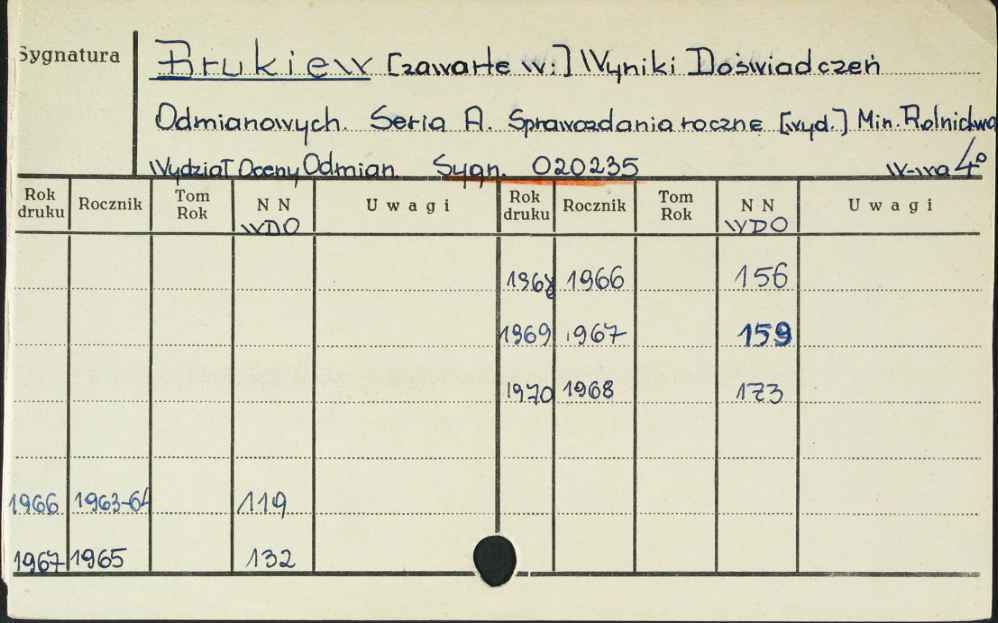 Sygnatura
Brukiew [zawarte w:] Wyniki Doświadczeń
Odmianowych. Seria A. Sprawozdania roczne [wyd.] Min. Rolnictwa
Wydział Oceny Odmian. Sygn. 020235 W-wa 4°
Rok druku Rocznik Tom Rok NN WDO Uwagi Rok druku Rocznik Tom Rok NN WDO Uwagi
1968 1966 156
1969 1967 159
1970 1968 173
1966 1963-64 119
1967 1965 132